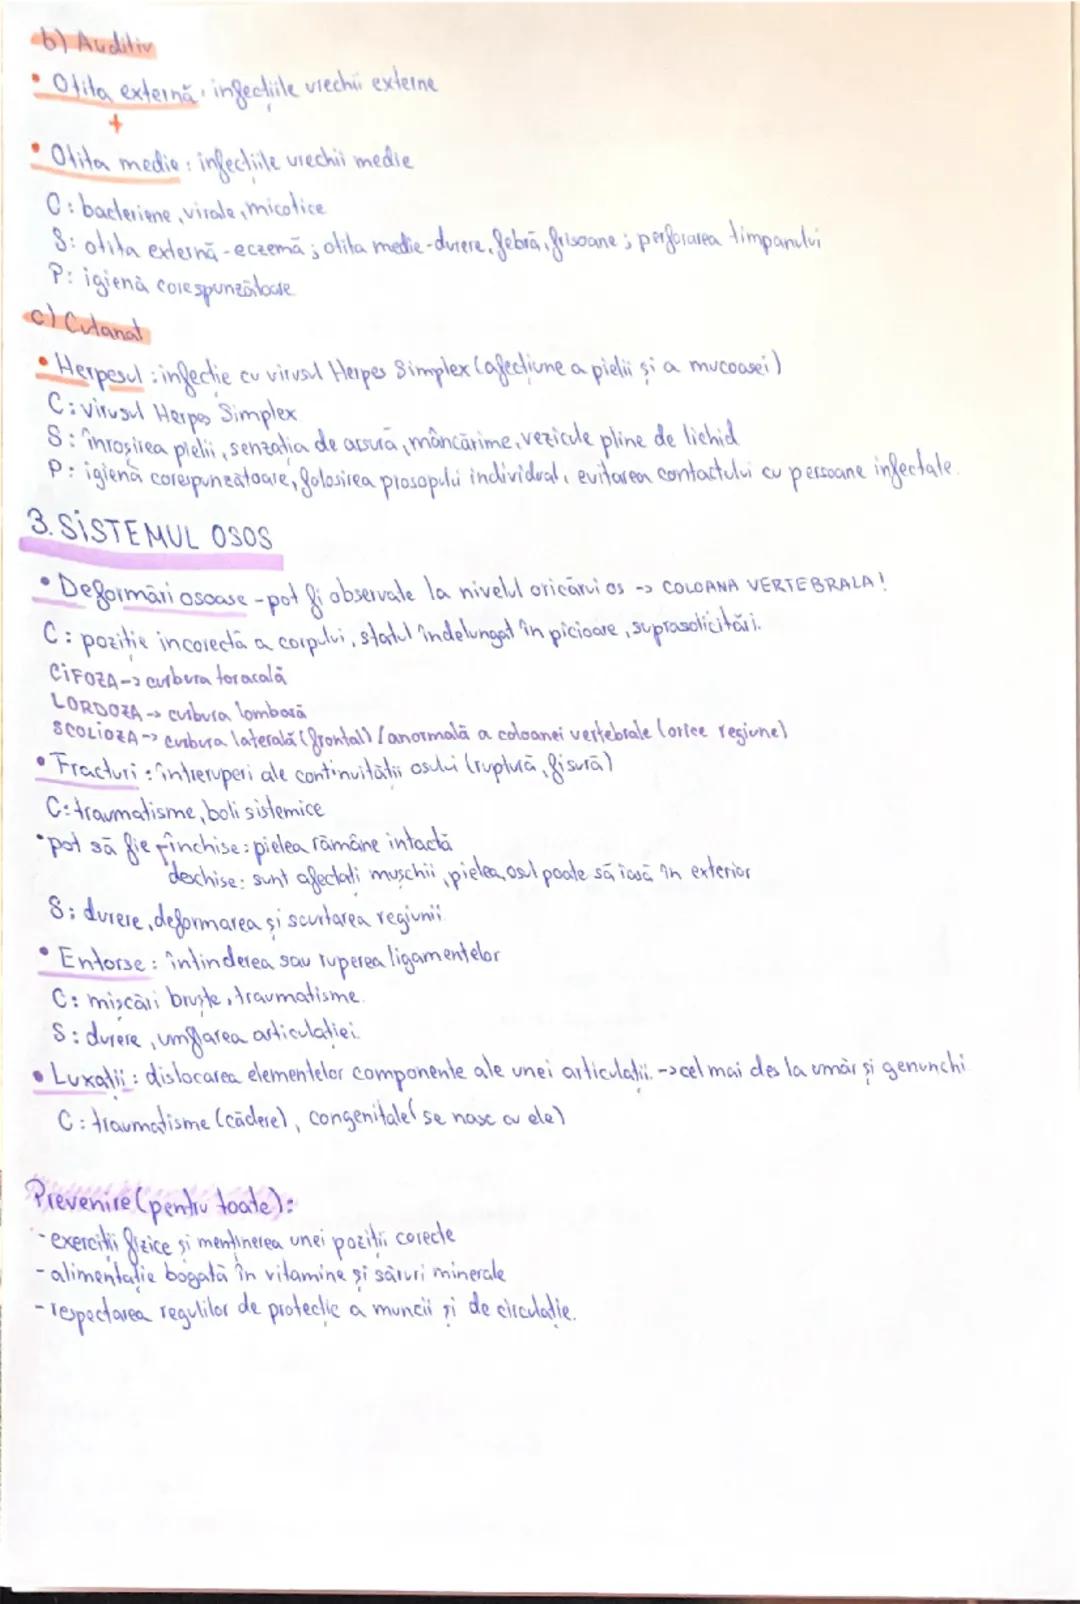 b) Auditiv
• Otita externă: infecțiile urechii externe
+
• Otita medie: infecțiile urechii medie
C: bacteriene, virale, micotice
S: otita externă - eczemă; otita medie - durere, febră, frisoane; perforarea timpanului
P: igienă corespunzătoare
c) Cutanat
• Herpesul: infecție cu virusul Herpes Simplex (afecțiune a pielii și a mucoasei)
C: virusul Herpes Simplex
S: înroșirea pielii, senzația de arsură, mâncărime, vezicule pline de lichid
P: igienă corespunzătoare, folosirea prosopului individual, evitarea contactului cu persoane infectate.
3. SISTEMUL OSOS
• Deformări osoase - pot fi observate la nivelul oricărui os -> COLOANA VERTEBRALA!
C: poziție incorectă a corpului, statul îndelungat în picioare, suprasolicitări.
CIFOZA -> curbura toracală
LORDOZA -> curbura lombară
SCOLIOZA -> curbura laterală (frontal) / anormală a coloanei vertebrale (orice regiune)
• Fracturi: întreruperi ale continuității osului (ruptură, fisură)
C: traumatisme, boli sistemice
• pot să fie închise: pielea rămâne intactă
deschise: sunt afectați mușchii, pielea, osul poate să iasă în exterior
S: durere, deformarea și scurtarea regiunii
• Entorse: întinderea sau ruperea ligamentelor
C: mișcări bruște, traumatisme.
S: durere, umflarea articulației.
• Luxații: dislocarea elementelor componente ale unei articulații. -> cel mai des la umăr și genunchi
C: traumatisme (cădere), congenitale (se nasc cu ele)
Prevenire (pentru toate):
- exerciții fizice și menținerea unei poziții corecte
- alimentație bogată în vitamine și săruri minerale
- respectarea regulilor de protecție a muncii și de circulație.